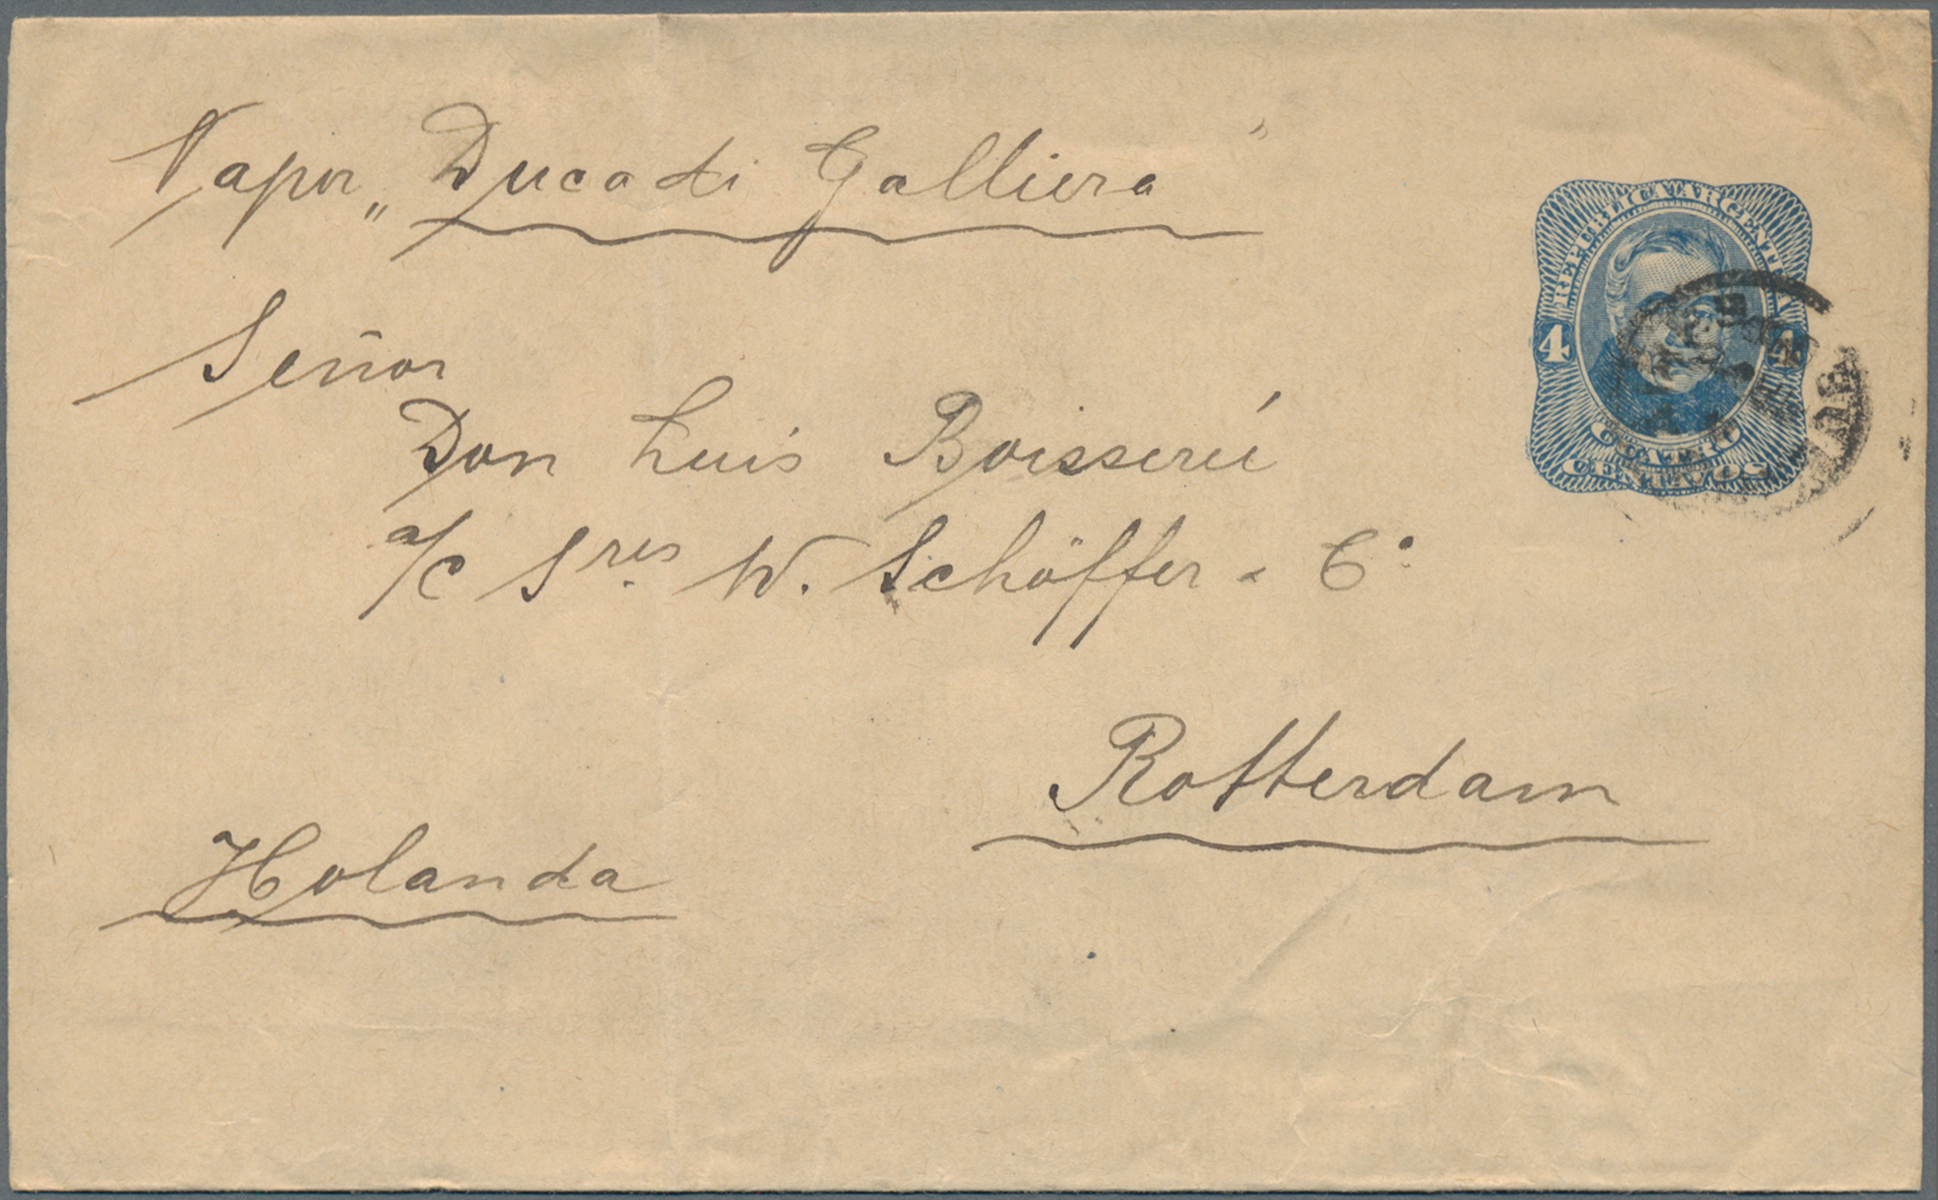 Vapor „Duca di Galliera"
REPUBLICA ARGENTINA
4 4
CUATRO
CENTAVOS
Señor
Don Luis Boisserée
a/c Sres W. Schöffer & Co.
Rotterdam
Holanda